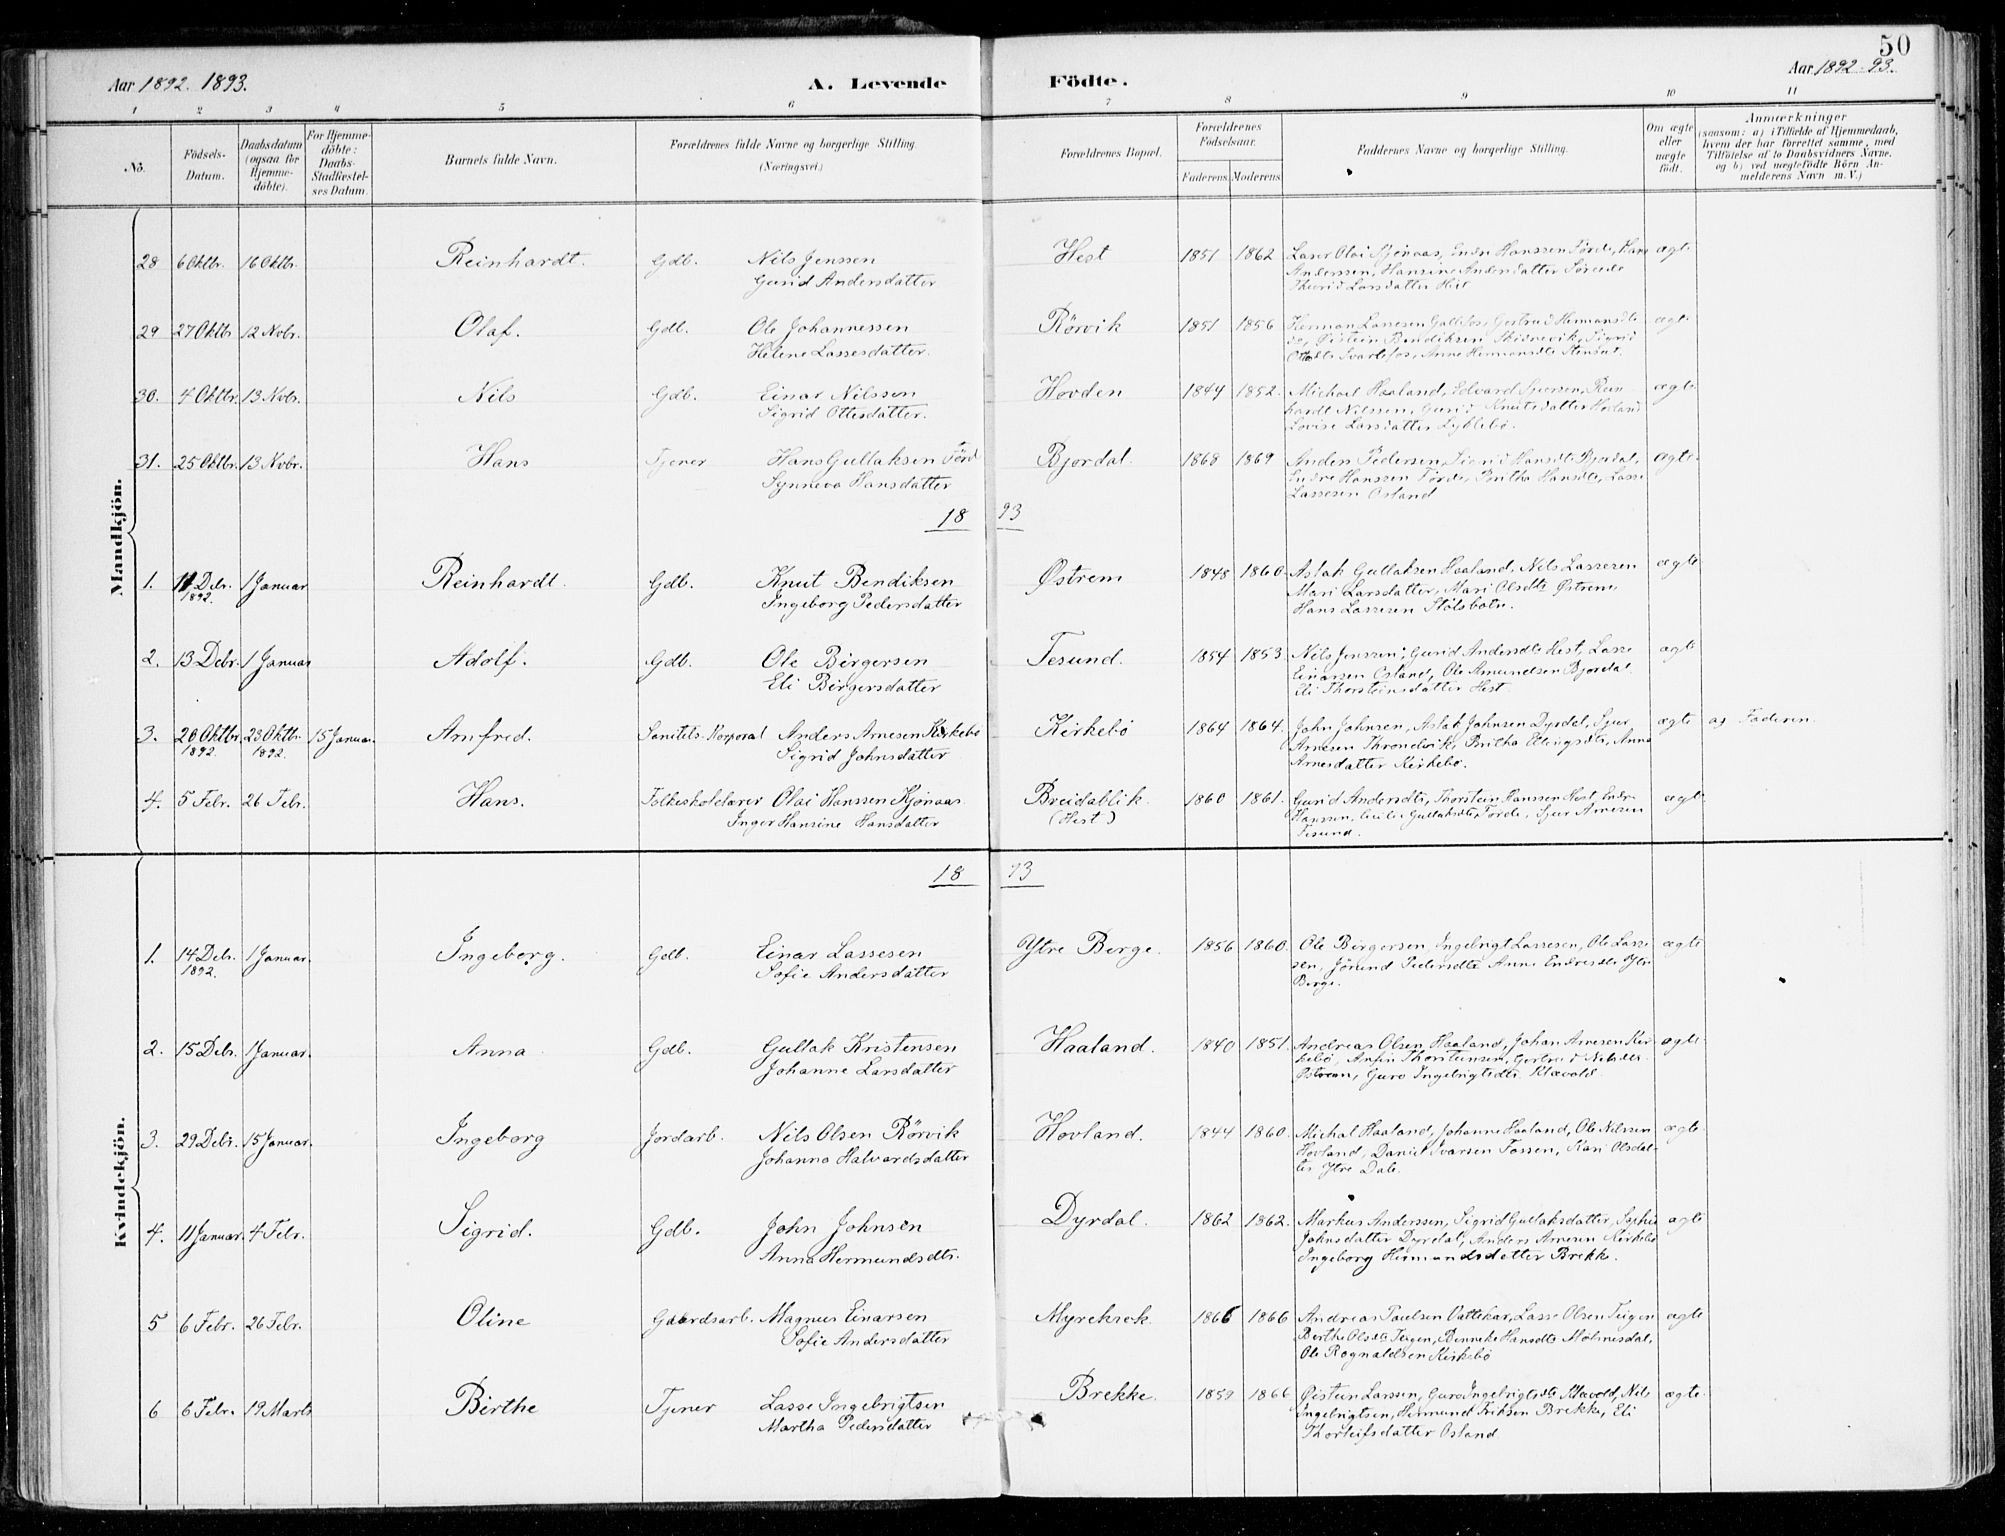 50
Aar 1892. 1893.
A. Levende Födte.
Aar 1892-93.
1 2 3 4 5 6 7 8 9 10 11
No.
Födsels-Datum.
Daabsdatum (ogsaa for Hjemme-döbte).
For Hjemme-döbte: Daabs-Stadfæstel-ses Datum.
Barnets fulde Navn.
Forældrenes fulde Navne og borgerlige Stilling. (Næringsvei.)
Forældrenes Bopæl.
Forældrenes Födselsaar.
Faderens. Moderens.
Faddernes Navne og borgerlige Stilling.
Om ægte eller uægte födt.
Anmærkninger
(saasom: a) i Tilfælde af Hjemmedaab, hvem der har forrettet samme, med Tilföielse af to Daabsvidners Navne, og b) ved uægtefödte Börn An-melderens Navn m. V.)
Mandkjön.
28 6 Oktbr. 16 Oktbr. Reinhardt. Gdb. Nils Jenssen Hest 1851 1862 Olai Hjönaas, Endre Hanssen Förde, Hans ægte
Gurid Andersdatter Anderssen, Hansine Andersdatter Förde
Thurid Larsdatter Hest
29 27 Oktbr 12 Nobr. Olaf. Gdb. Ole Johannessen Rörvik 1851 1856 Herman Lassesen, Gertrud Hermansdtr ægte
Helene Lassesdatter. Øistein Bendiksen, Sigrid
Svartefos, Anne Hermansdtr
30. 4 Oktbr. 13 Nobr. Nils Gdb. Einar Nilssen Hovden 1844 1852. Michael Haaland, Edvard Sjursen, Rein- ægte
Sigrid Ottesdatter. hardt Nilssen, Gurid Knutsdatter Hovland
Lovise Larsdatter Lyklebö.
31. 25 Oktbr. 13 Nobr. Hans Tjener Hans Gullaksen Förd Bjordal. 1868 1869 Anders Pedersen, Sigrid Hansdtr Bjordal, ægte
Synneva Hansdatter Endre Hanssen Förde, Britha Hansdtr, Lasse
Lassesen Osland
18 93
1. 11 Debr. 1892. 1 Januar Reinhardt. Gdb. Knut Bendiksen Østrem 1848 1860. Aslak Gullaksen Haaland, Nils Lassesen ægte
Ingeborg Pedersdatter Mari Larsdatter, Mari Olsdtr Østrem
Hans Lassesen Stölsbotn.
2. 13 Debr. 1 Januar Adolf. Gdb. Ole Birgersen Tesund. 1854 1853. Nils Jenssen, Gurid Andersdtr Hest, Lasse ægte
Eli Birgersdatter Einarsen Osland, Ole Amundsen Bjordal
Eli Thorsteinsdatter Hest.
3. 20 Oktbr. 1892. 23 Oktbr. 1892. 15 Januar. Arnfred. Sanitets-Korporal Anders Arnesen Kirkebö Kirkebö 1864 1864. John Johnsen, Aslak Johnsen Dyrdal, Sjur ægte a) Faderen.
Sigrid Johnsdatter Arnesen, Britha Ellingsdtr, Anna
Arnesdatter Kirkebö.
4. 5 Febr. 26 Febr. Hans. Folkeskolelærer Olai Hanssen Hjönaas Breidablik. 1860 1861. Gurid Andersdtr, Thorstein Hanssen Hest, Endre ægte
Inger Hansine Hansdatter (Hest) Hanssen, Gullaksdtr, Förde, Sjur Arnesen
Tesund.
Kvindekjön.
18 93
1. 14 Debr. 1892. 1 Januar. Ingeborg. Gdb. Einar Lassesen Ytre Berge. 1856 1860. Ole Birgersen, Ingebrigt Lassesen, Ole Lasse- ægte
Sofie Andersdatter sen, Jörund Pedersdtr Anne Endresdtr Ytre
Berge.
2. 15 Debr. 1 Januar. Anna Gdb. Gullak Kristensen Haaland. 1840 1851. Andreas Olsen Haaland, Johan Arnesen Kir- ægte
Johanne Larsdatter kebö, Anfin Thorsteinsen, Gertrud Nilsdtr
Østrem, Guro Ingebrigtsdtr. Klævold.
3. 29 Debr. 15 Januar. Ingeborg Jordarb. Nils Olsen Rörvik Hovland. 1844 1860. Michal Haaland, Johanne Haaland, Ole Nilssen ægte
Johanna Halvardsdatter Hovland, Daniel Ivarsen Fossen, Kari Olsdat-
ter Ytre Dale.
4. 11 Januar. 4 Febr. Sigrid. Gdb. John Johnsen Dyrdal. 1862 1862. Markus Anderssen, Sigrid Gullaksdatter, Sophie ægte
Anna Hermundsdtr. Johnsdatter Dyrdal, Anders Arnesen Kirkebö
Ingeborg Hermundsdatter Brekke.
5 6 Febr. 26 Febr. Oline Gaardsarb. Magnus Einarsen Myreksok. 1866 1866 Andreas Paulsen Vattekar, Lasse Olsen Teigen ægte
Sofie Andersdatter Berthe Olsdtr Teigen, Benneke Hansdtr Molmesdal,
Ole Rognaldsen Kirkebö
6 6 Febr. 19 Marts Birthe Tjener Lasse Ingebrigtsen Brekke. 1859 1866 Øistein Larssen, Guro Ingebrigtsdtr Klævold, Nils ægte
Martha Pedersdatter Ingebrigtsen, Hermund Eriksen Brekke, Eli
Thorleifsdatter Osland